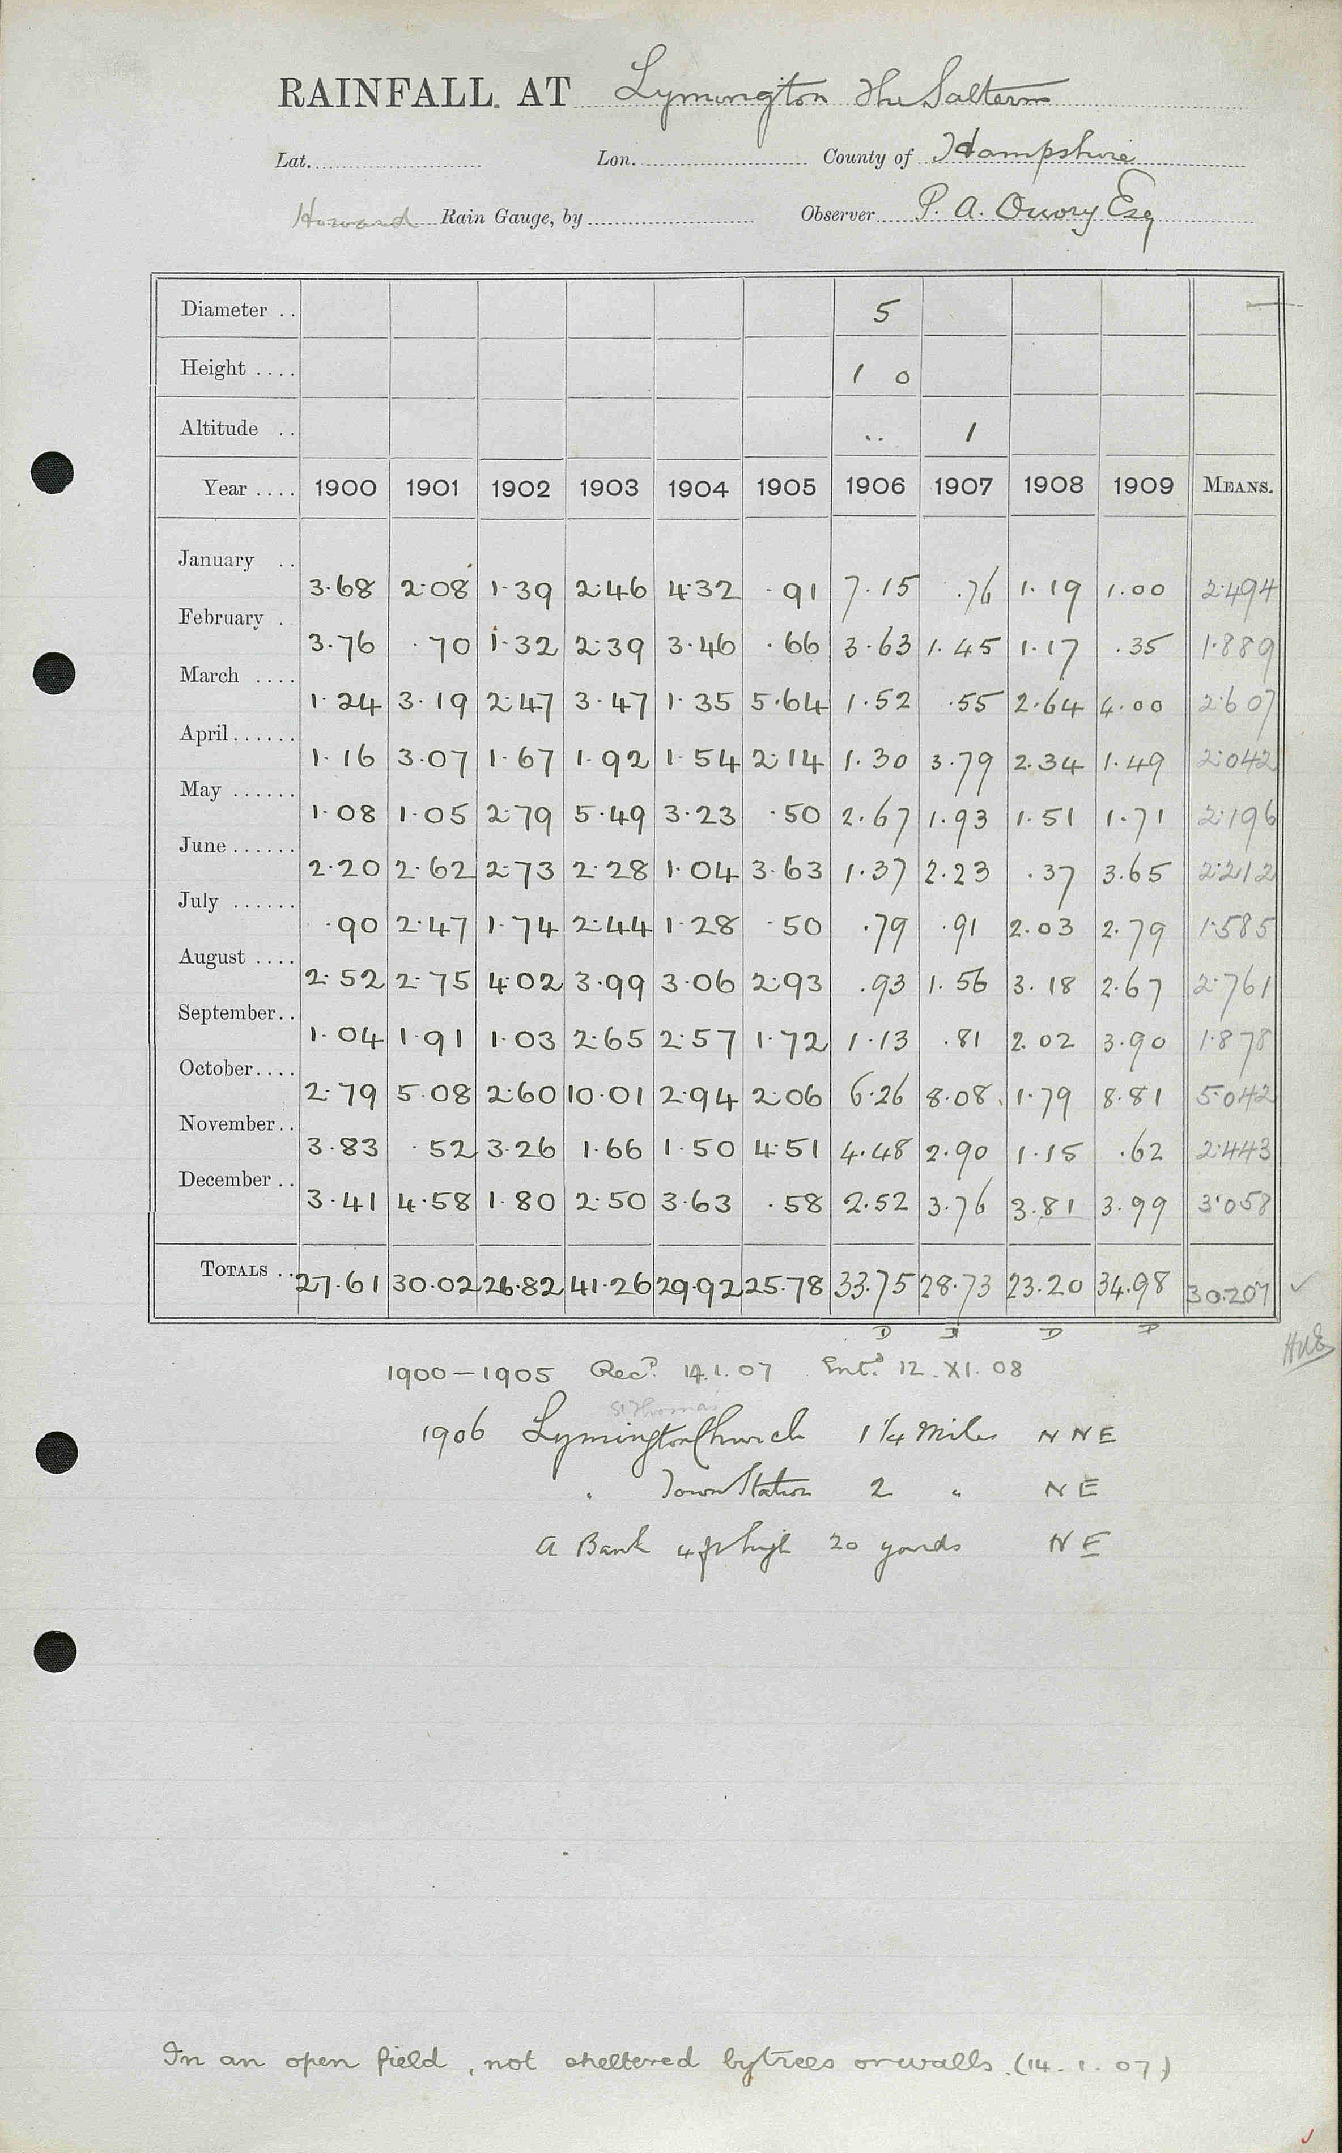 RAINFALL AT Lymington The Salterns
Lat. Lon. County of Hampshire
Howard Rain Gauge, by Observer P. A. Ouvry Esq
Diameter .. 5
Height .... 1 0
Altitude .. .. 1
Year .... 1900 1901 1902 1903 1904 1905 1906 1907 1908 1909 MEANS.
January .. 3.68 2.08 1.39 2.46 4.32 .91 7.15 .76 1.19 1.00 2.494
February . 3.76 .70 1.32 2.39 3.46 .66 3.63 1.45 1.17 .35 1.889
March .... 1.24 3.19 2.47 3.47 1.35 5.64 1.52 .55 2.64 4.00 2.607
April ...... 1.16 3.07 1.67 1.92 1.54 2.14 1.30 3.79 2.34 1.49 2.042
May ...... 1.08 1.05 2.79 5.49 3.23 .50 2.67 1.93 1.51 1.71 2.196
June ...... 2.20 2.62 2.73 2.28 1.04 3.63 1.37 2.23 .37 3.65 2.212
July ...... .90 2.47 1.74 2.44 1.28 .50 .79 .91 2.03 2.79 1.585
August .... 2.52 2.75 4.02 3.99 3.06 2.93 .93 1.56 3.18 2.67 2.761
September .. 1.04 1.91 1.03 2.65 2.57 1.72 1.13 .81 2.02 3.90 1.878
October .... 2.79 5.08 2.60 10.01 2.94 2.06 6.26 8.08 1.79 8.81 5.042
November .. 3.83 .52 3.26 1.66 1.50 4.51 4.48 2.90 1.15 .62 2.443
December .. 3.41 4.58 1.80 2.50 3.63 .58 2.52 3.76 3.81 3.99 3.058
TOTALS .. 27.61 30.02 26.82 41.26 29.92 25.78 33.75 28.73 23.20 34.98 30.207 ✓
1900-1905 Recd. 14.1.07 Entd. 12.XI.08
St Thomas
1906 Lymington Church 1¼ Miles NNE
" Town Station 2 " NE
A Bank 4 ft high 20 yards NE
In an open field, not sheltered by trees or walls. (14.1.07)